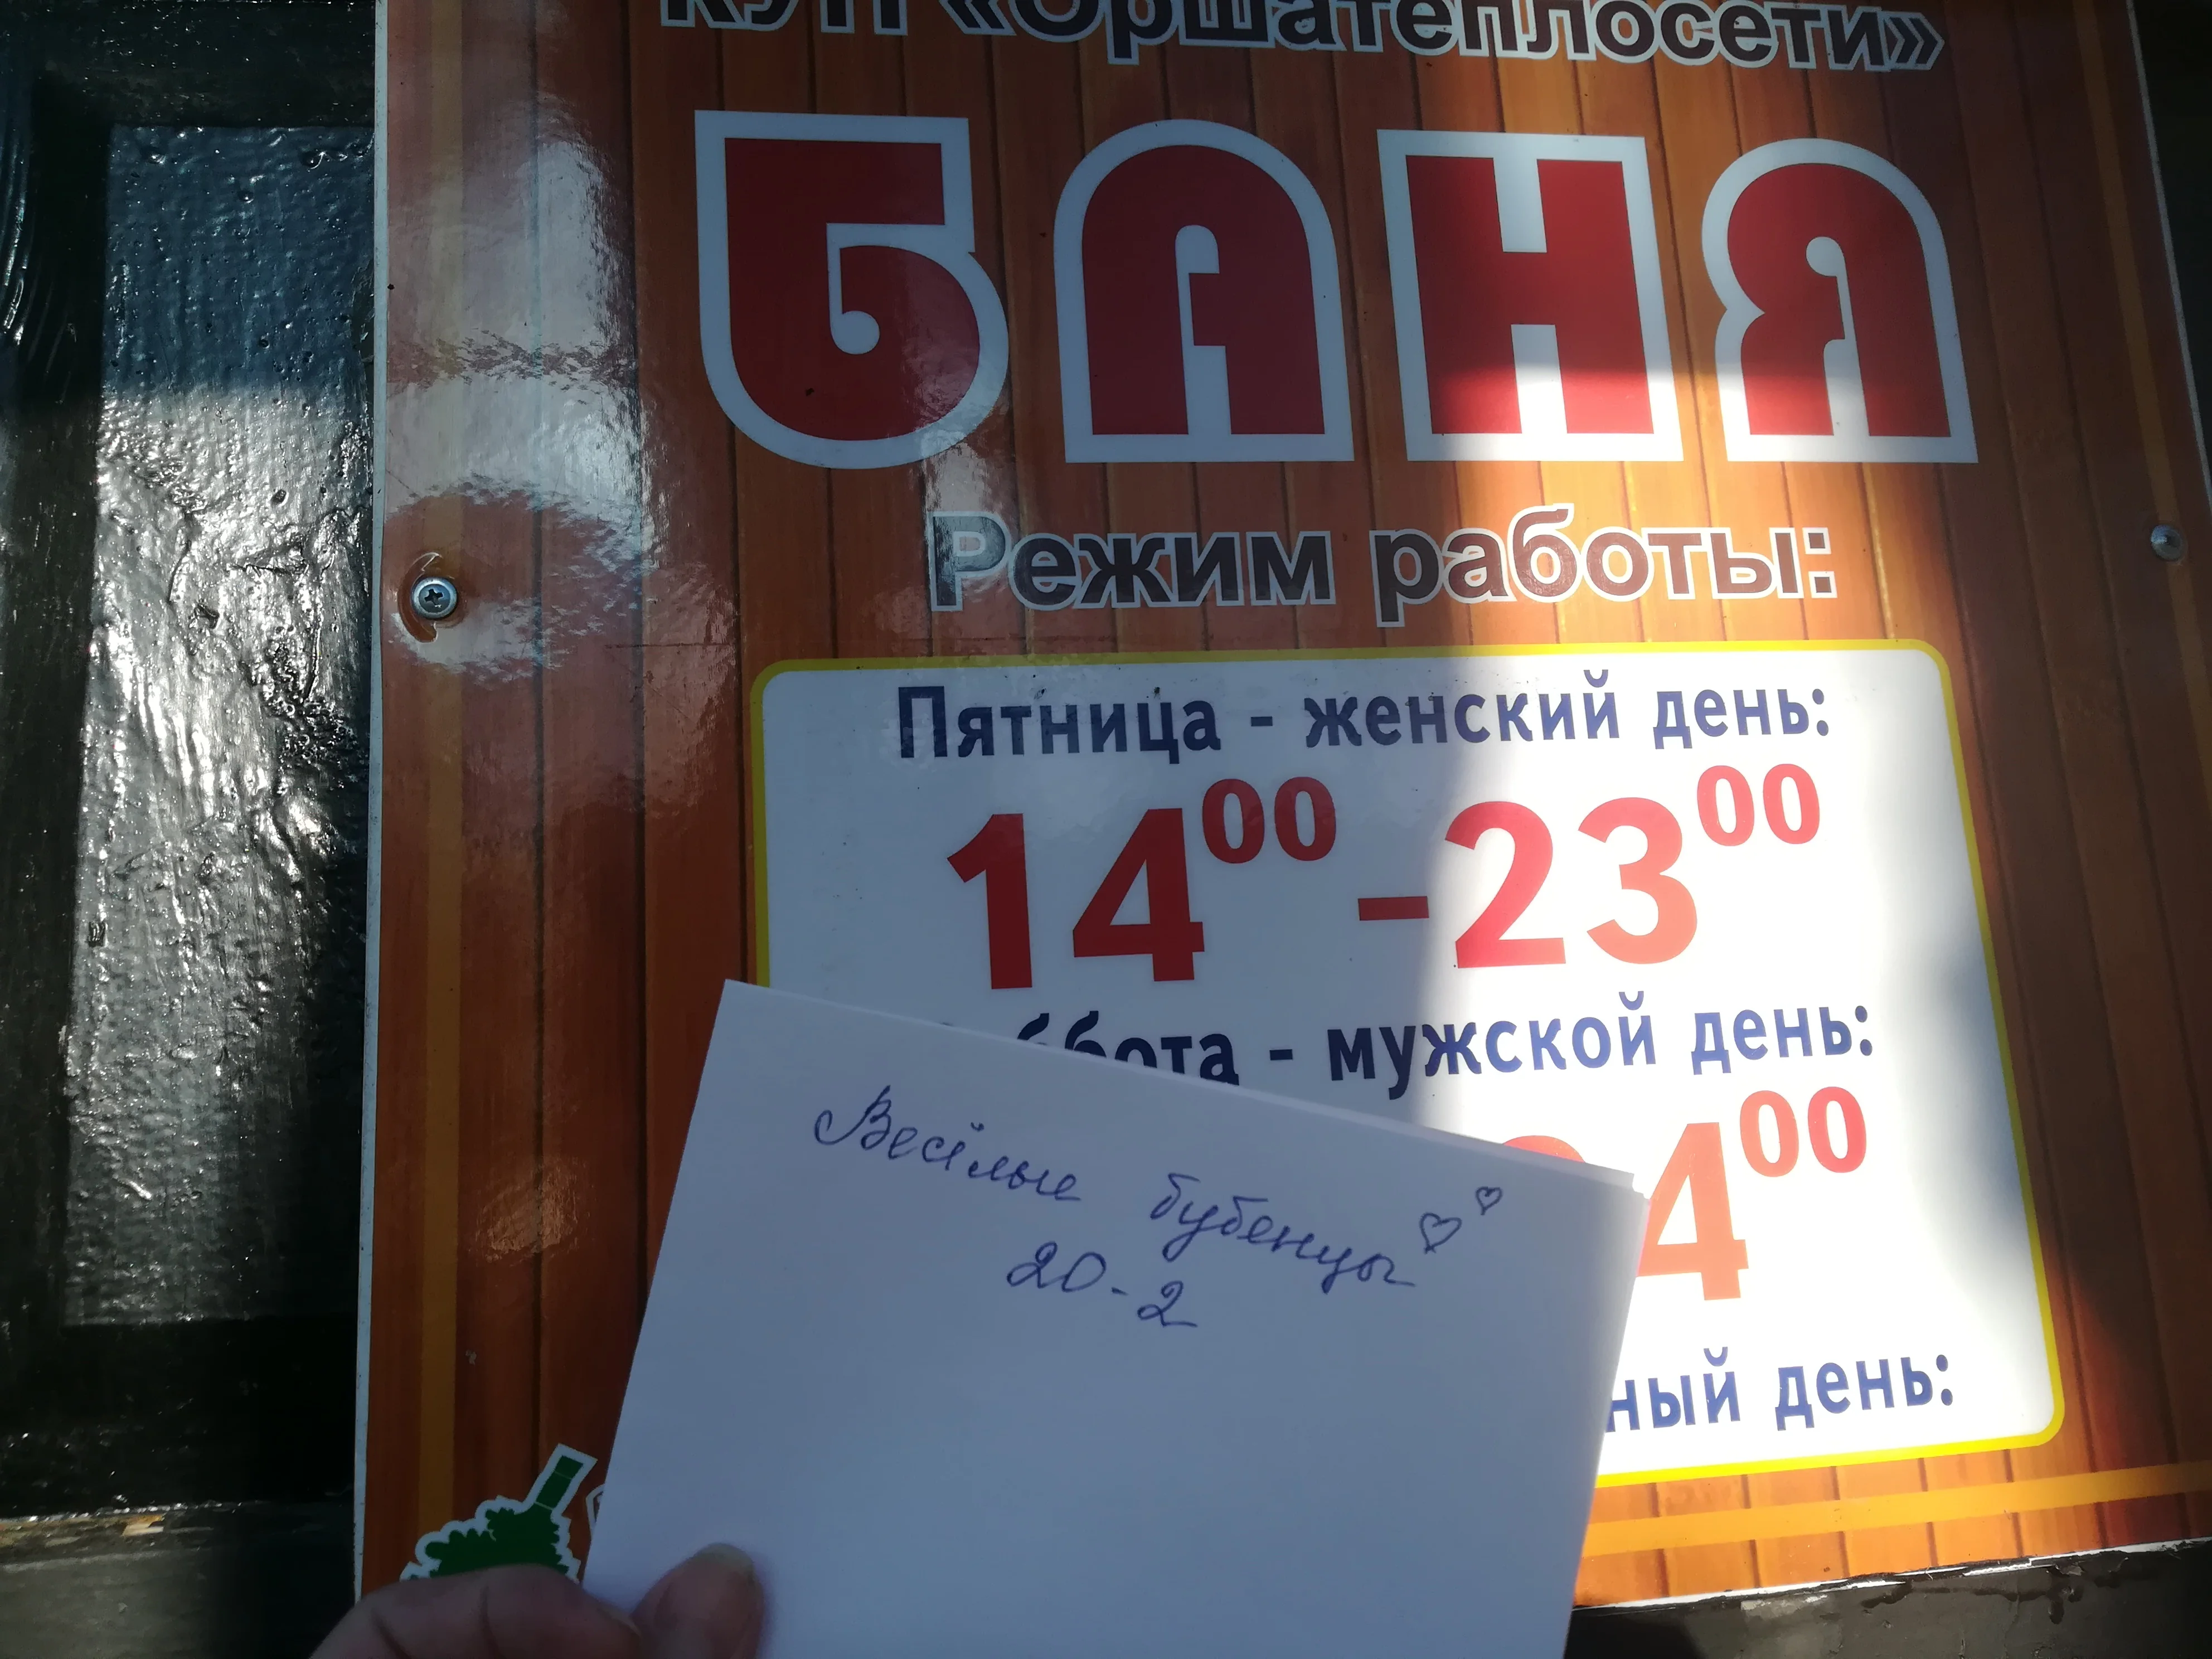 КУП «Оршатеплосети»
БАНЯ
Режим работы:
Пятница - женский день:
14⁰⁰-23⁰⁰
- мужской день:
4⁰⁰
день:
Весёлые бубенцы
20-2